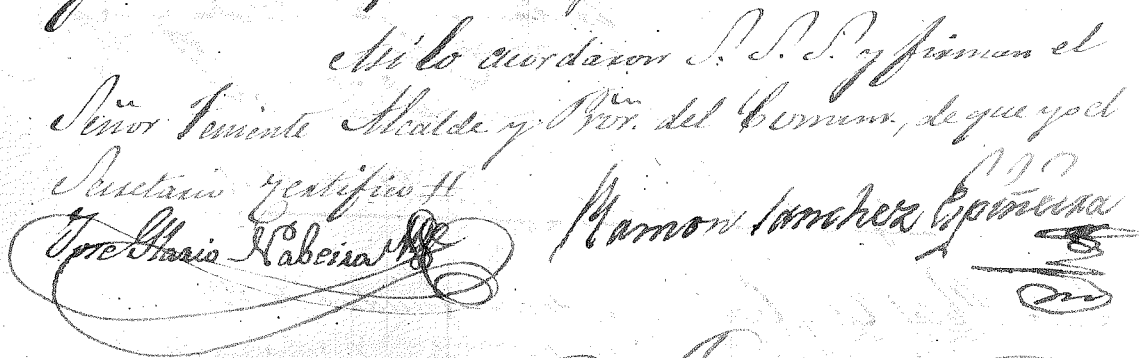 Asi lo acordaron S. S. S. y firman el
Señor Teniente Alcalde y Pror. del Comun, de que yo el
Secretario zertifico //
Jose Maria Nabeira Ramon Sanchez Epiñeira